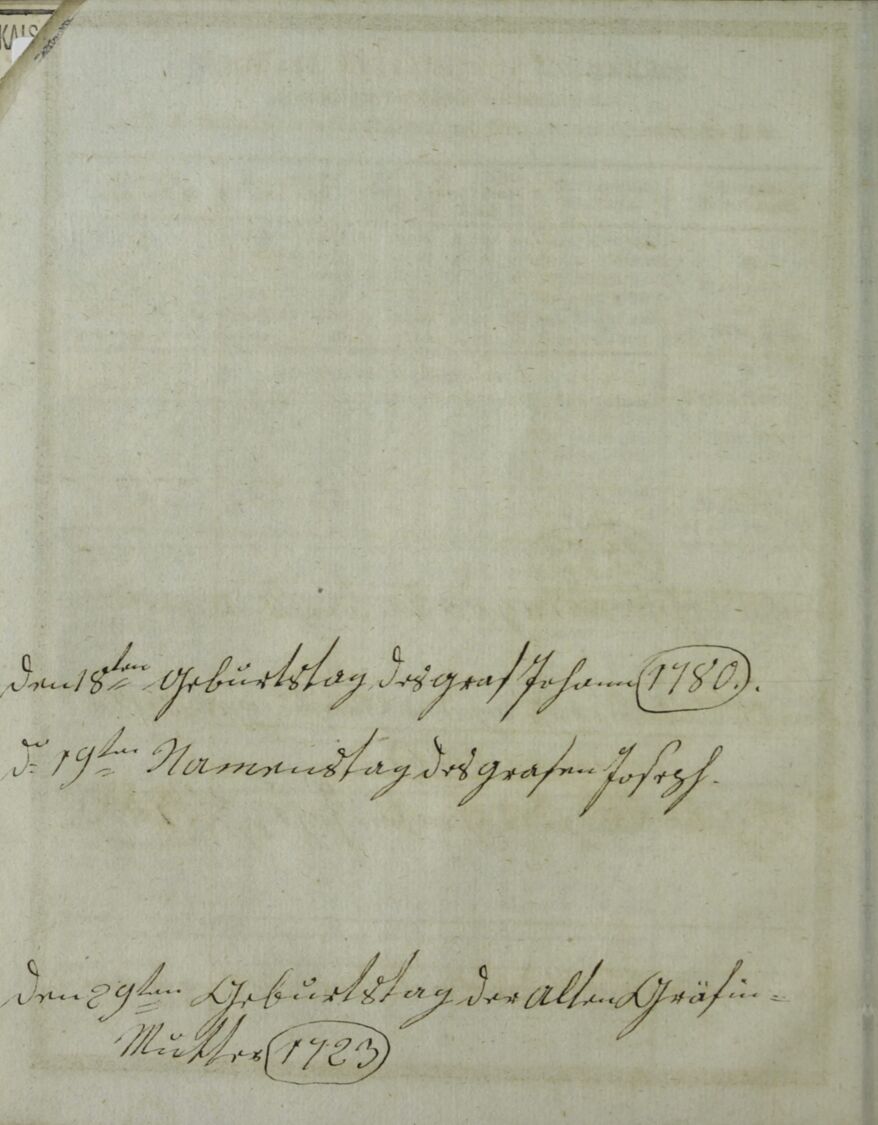 KAIS
den 18ten Geburtstag des graf Johann 1780.
dn 19ten Namenstag des grafen Joseph.
den 29ten Geburtstag der alten Gräfin=
Mutter 1723